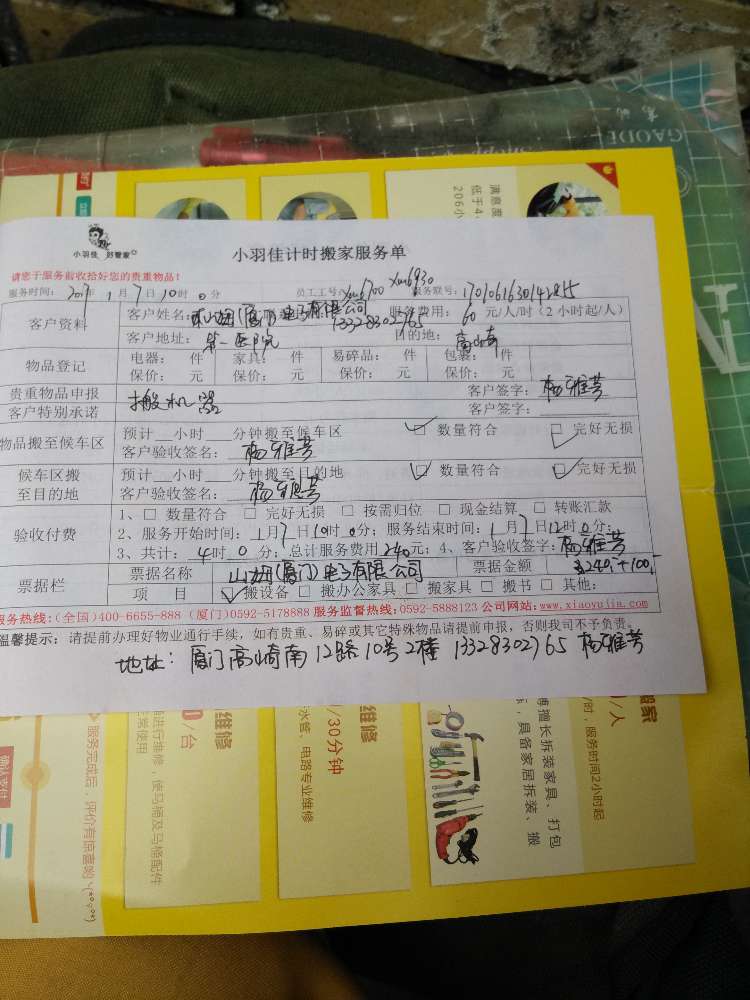 GAODE
满意度
低于4.
206小
小羽佳 好管家
小羽佳计时搬家服务单
请您于服务前收拾好您的贵重物品!
服务时间: 2017年 1月7日10时0分 员工工号: xm6700 xm6930 服务联号: 170106163014285
客户资料
客户姓名: (厦门)电子有限公司 13328302765 服务费用: 60 元/人/时(2小时起/人)
客户地址: 第一医院 目的地: 高崎
物品登记
电器: 件 家具: 件 易碎品: 件 包裹: 件
保价: 元 保价: 元 保价: 元 保价: 元
贵重物品申报 搬机器 客户签字: 杨雅芳
客户特别承诺 客户签字:
物品搬至候车区
预计__小时__分钟搬至候车区 ☑ 数量符合 ☑ 完好无损
客户验收签名: 杨雅芳
候车区搬至目的地
预计__小时__分钟搬至目的地 ☑ 数量符合 ☑ 完好无损
客户验收签名: 杨雅芳
验收付费
1、□ 数量符合 □ 完好无损 □ 按需归位 □ 现金结算 □ 转账汇款
2、服务开始时间: 1月7日10时0分; 服务结束时间: 1月7日12时0分;
3、共计: 4时0分; 总计服务费用240元; 4、客户验收签字: 杨雅芳
票据栏
票据名称 (厦门)电子有限公司 票据金额 240+100
项 目 ☑ 搬设备 □ 搬办公家具 □ 搬家具 □ 搬书 □ 其他:
服务热线:(全国)400-6655-888 (厦门)0592-5178888 服务监督热线:0592-5888123 公司网站:www.xiaoyujia.com
温馨提示: 请提前办理好物业通行手续, 如有贵重、易碎或其它特殊物品请提前申报, 否则我司不予负责。
地址: 厦门高崎南12路10号2幢 13328302765 杨雅芳
维修
0/台
进行维修, 使马桶及马桶配件
正常使用
维修
/30分钟
水管、电路专业维修
搬家
/人
时, 服务时间2小时起
傅擅长拆装家具、打包
, 具备家居拆装、搬
确认支付
服务完成后, 评价有惊喜哟